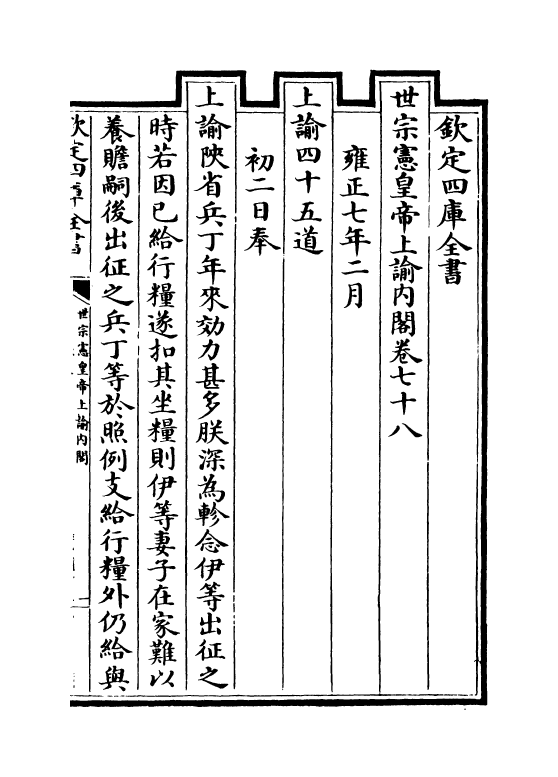 欽定四庫全書
世宗憲皇帝上諭内閣卷七十八
雍正七年二月
上諭四十五道
初二日奉
上諭陝省兵丁年來効力甚多朕深為軫念伊等出征之
時若因已給行糧遂扣其坐糧則伊等妻子在家難以
養贍嗣後出征之兵丁等於照例支給行糧外仍給與
欽定四庫全書
世宗憲皇帝上諭内閣